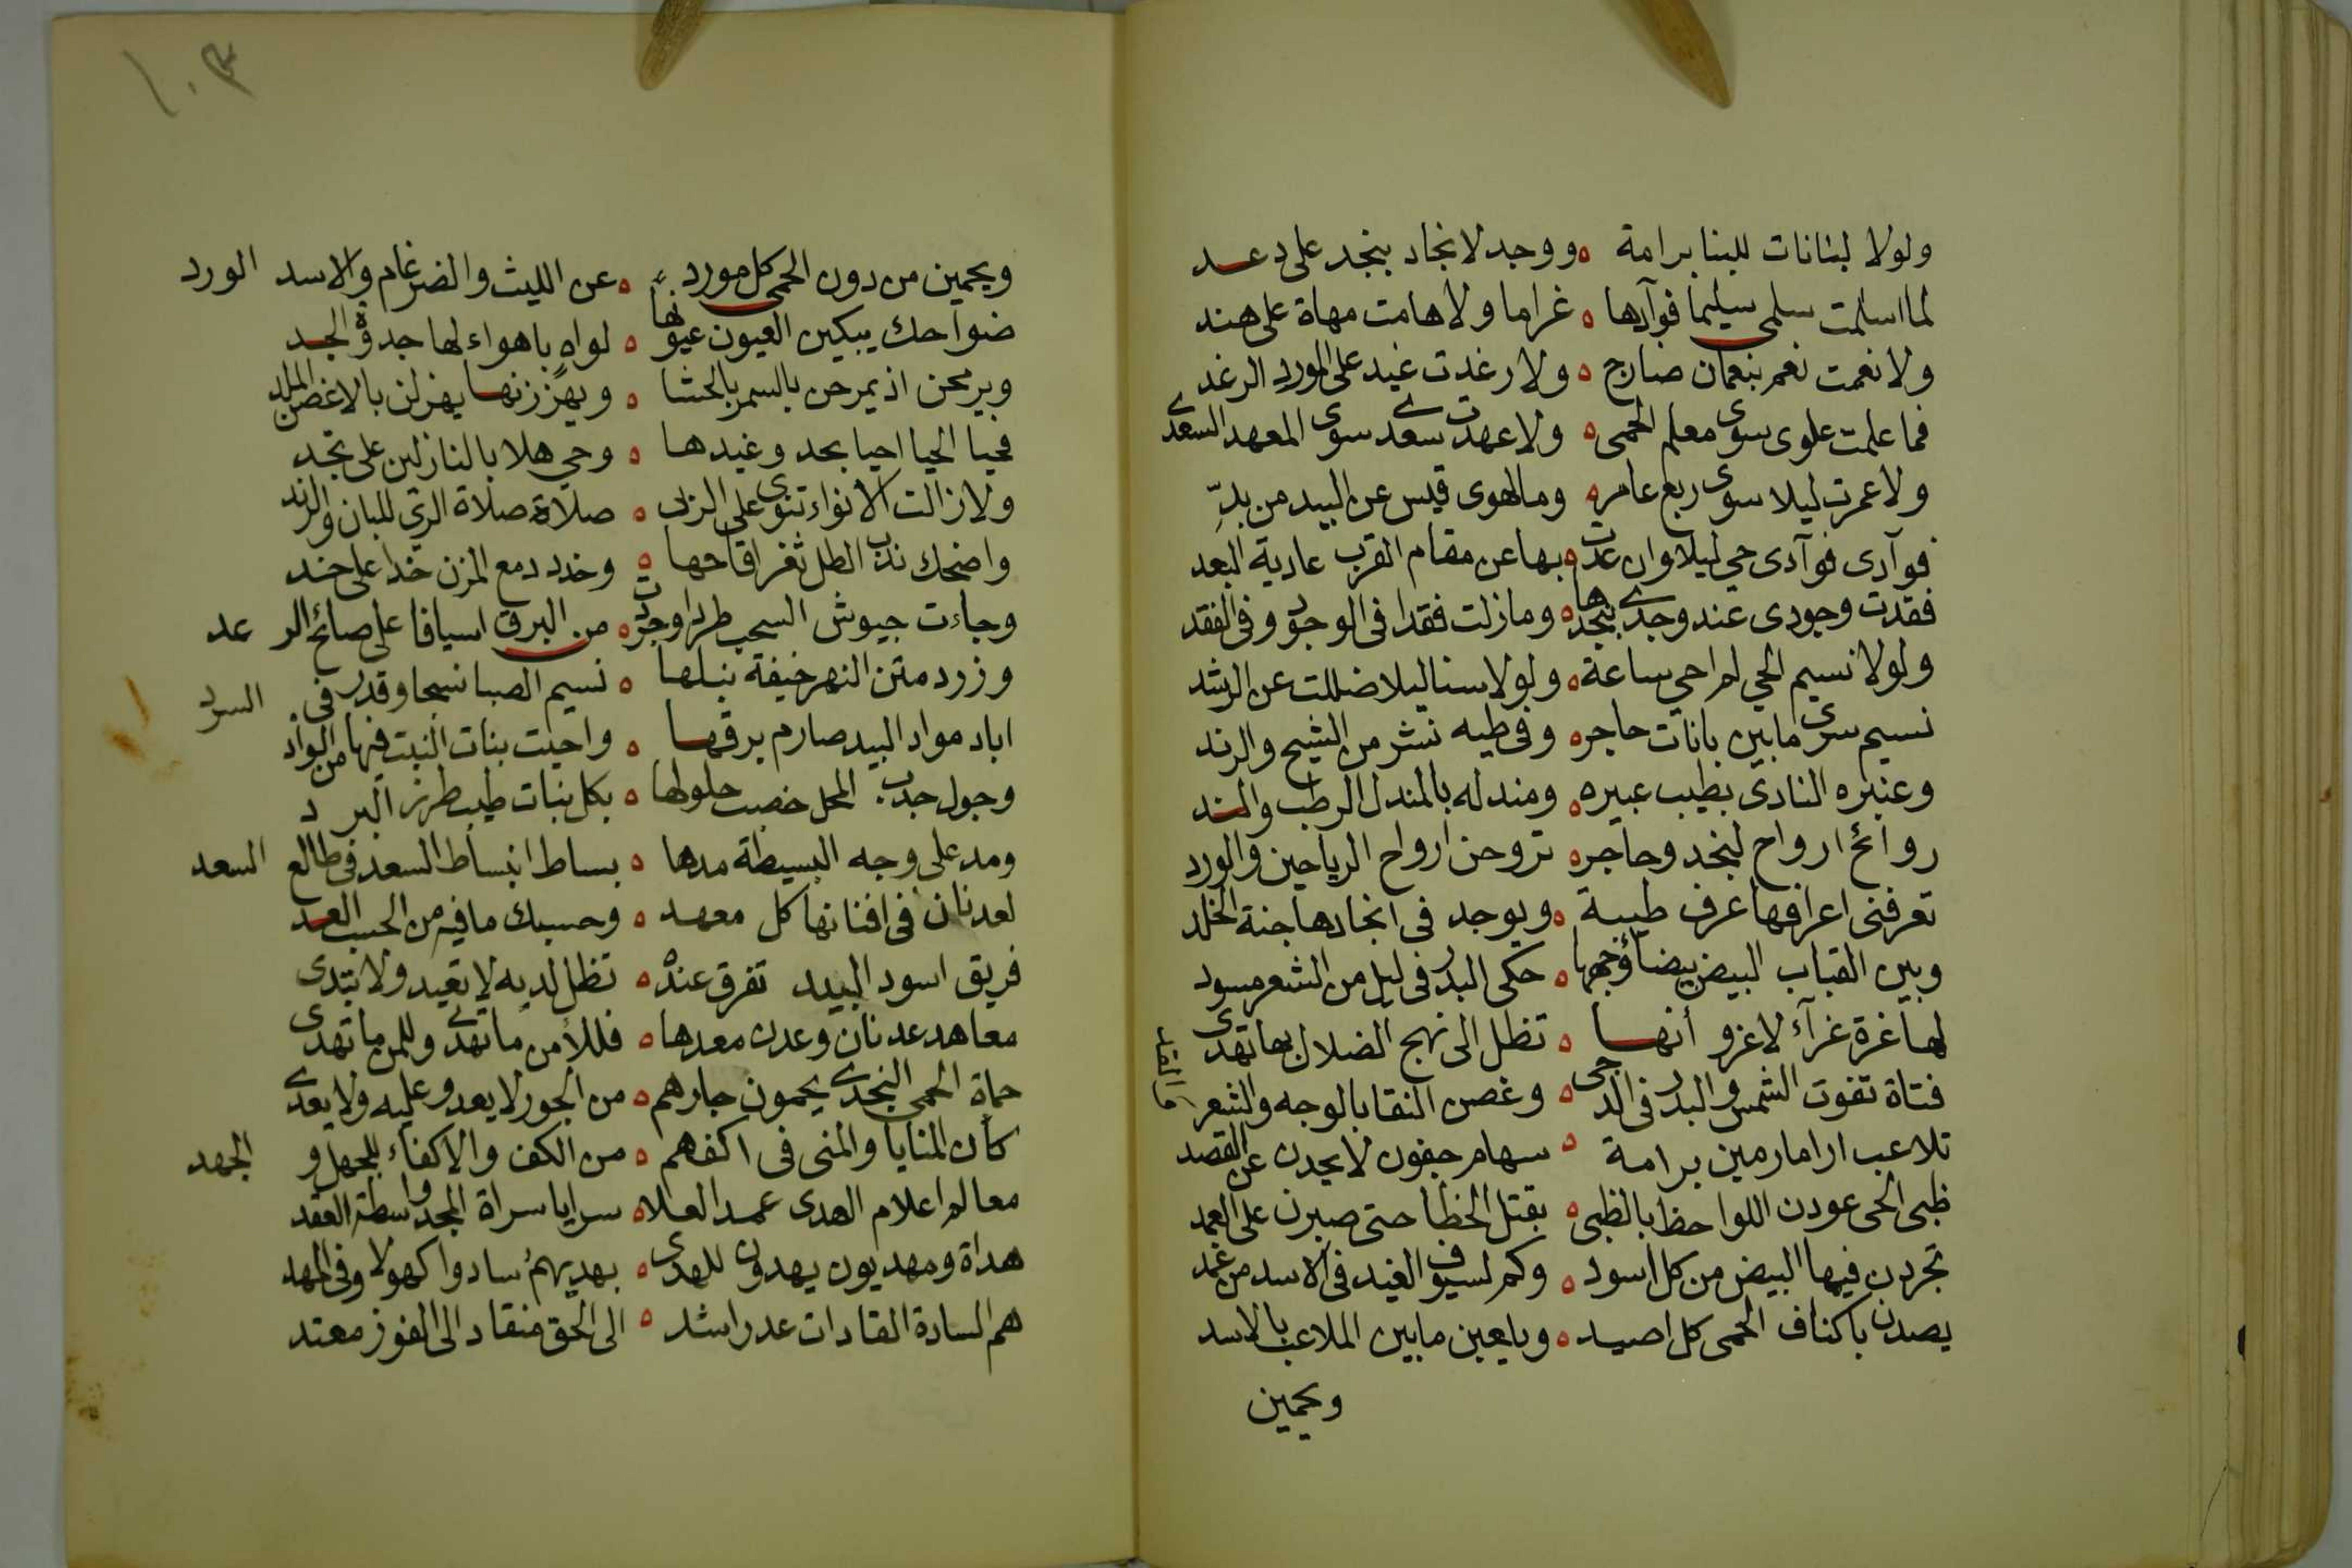 ولولا لبنانات للبنا برامة ە ووجد لانجاد بنجد على دعد
لما اسلمت سلمى سيليما فوآدها ە غراما ولا هامت مهاة على هند
ولا نعمت نعم بنعمان ضارج ە ولا رغدت غيد على المورد الرغد
فما علمت علوى سوى معلم الحمى ە ولا عهدت سعدى سوى المعهد السعدى
ولا عمرت ليلا سوى ربع عامر ە وما لهوى قيس عن البيد من بدِّ
فوآدى فوآدى حي ليلا وان عدت ە بها عن مقام القرب عادية البعد
فقدت وجودى عند وجدى بنجدها ە وما زلت فقدا فى الوجود وفى الفقد
ولولا نسيم الحي لم احي ساعة ە ولولا سنا ليلا ضللت عن الرشد
نسيم سرى مابين بانات حاجر ە وفى طيه نشر من الشيح والرند
وعنبره النادى بطيب عبيره ە ومندله بالمندل الرطب والند
روائح ارواح لنجد وحاجر ە تروحن ارواح الرياحين والورد
تعرفنى اعرافها عرف طيبة ە ويوجد فى انجادها جنة الخلد
وبين القباب البيض بيضاؤجهها ە حكى البدر فى ليل من الشعر مسود
لها غرة غرآء لاغرو أنها ە تظل الى نهج الضلال بها تهدى
فتاة تفوت الشمس والبدر فى الدجى ە وغصن النقا بالوجه والشعر والقد
تلاعب ارامارمين برامة ە سهام جفون لا يحدن عن القصد
ظبى الحى عودن اللواحظ بالظبى ە بقتل الخطا حتى صبرن على العمد
تجردن فيها البيض من كل اسود ە وكم لسيوف الغيد فى الاسد من غمد
يصدن باكناف الحمى كل اصيد ە ويلعبن مابين الملاعب بالاسد
ويحمين
١٠٣
ويحمين من دون الحمى كل مورد ە عن الليث والضرغام والاسد الورد
ضواحك يبكين العيون عيونها ە لواهٍ باهواء لها جدوة الجد
وبرمحن اذ يمرحن بالسمر بالحشا ە ويهززنها يهزلن بالاغصن الملد
فحيا الحيا احيا بحد وغيدها ە وحي هلا بالنازلين على نجد
ولا زالت الانواء تنوى على الربى ە صلاة صلاة الرى للبان والرند
واضحك ندب الطل ثغر اقاحها ە وخدد دمع المزن خدا على خد
وجاءت جيوش السحب طرا وجردت ە من البرق اسيافا على صائح الرعد
وزرد متن النهر خيفة نبلها ە نسيم الصبا نسجا وقدر فى السرد
اباد مواد البيد صارم برقها ە واحيت بنات النبت فيها من الواد
وجول جدب المحل خصب حلولها ە بكل بنات طيب طرز البرد
ومد على وجه البسيطة مدها ە بساط انبساط السعد فى طالع السعد
لعدنان فى افنانها كل معهد ە وحسبك مافيه من الحسب العد
فريق اسود البيد تفرق عنده ە تظل لديه لا تعيد ولا تبدى
معاهد عدنان وعدن معدها ە فللأمن ما تهدى وللمن ما تهدى
حماة الحمى النجدى يحمون جارهم ە من الجور لا يعدو عليه ولا يعدى
كأن المنايا والمنى فى اكفهم ە من الكف والاكفاء للجهل والجهد
معالم اعلام الهدى عمد العلا ە سرايا سراة المجد واسطة العقد
هداة ومهديون يهدون للهدى ە بهديهمُ سادوا كهولا وفى المهد
هم السادة القادات عد راشد ە الى الحق منقاد الى الفوز معتد